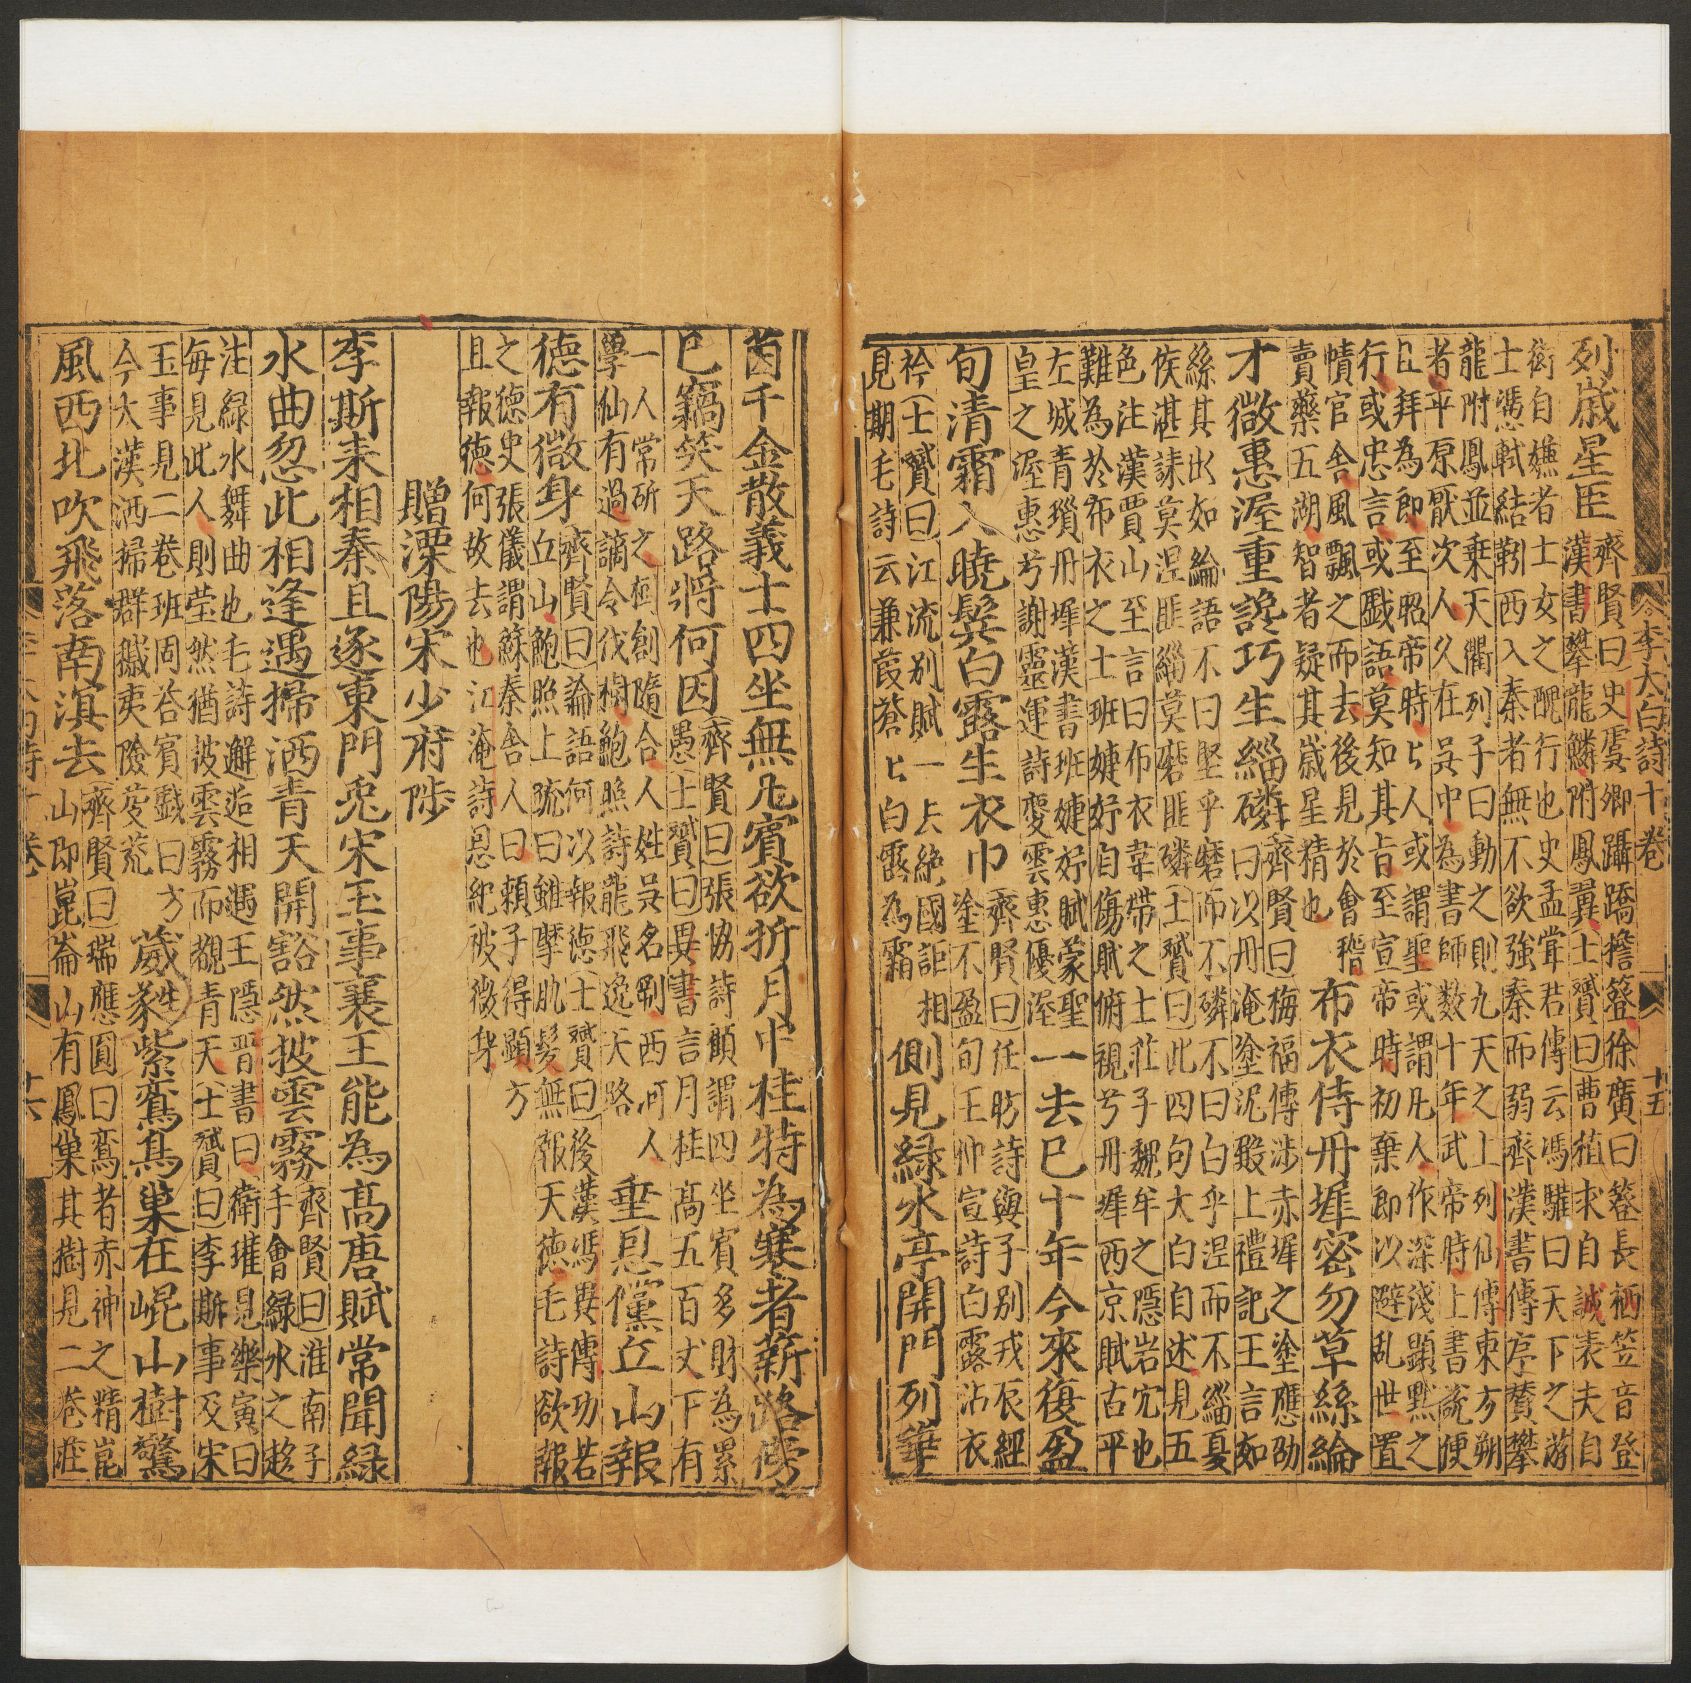 李太白詩十卷 十五
列戚星臣
齊賢曰史虞卿躡蹻擔簦徐廣曰簦長柄笠音登
漢書攀龍鱗附鳳翼士贇曰曹植求自試表夫自
衒自媒者士女之醜行也史孟甞君傳云馮驩曰天下之游
士憑軾結靷西入秦者無不欲強秦而弱齊漢書傳序賛攀
龍附鳳並乗天衢列子曰動之則九天之上列仙傳東方朔
者平原厭次人久在吳中為書師數十年武帝時上書說便
且拜為郎至昭帝時匕人或謂聖或謂凡人作深淺顯黙之
行或忠言或戲語莫知其旨至宣帝時初棄郎以避乱世置
幘官舍風飄之而去後見於會稽
賣藥五湖智者疑其歲星精也
布衣侍丹墀密勿草絲綸
才微惠渥重讒巧生緇磷
齊賢曰梅福傳涉赤墀之塗應劭
曰以丹淹塗泥殿上禮記王言如
絲其出如綸語不曰堅乎磨而不磷不曰白乎涅而不緇夏
侯湛誄莫涅匪緇莫磨匪磷士贇曰此四句太白自述見五
色注漢賈山至言曰布衣韋帶之士莊子魏牟之隠岩穴也
難為於布衣之士班婕妤自傷賦俯視兮丹墀西京賦古平
左城青瑣丹墀漢書班婕妤賦蒙聖
皇之渥惠兮謝靈運詩变雲惠優渥
一去已十年今來復盈
旬清霜入曉鬓白露生衣巾
齊賢曰任昉詩與子別戎辰經
塗不盈旬王仲宣詩白露沾衣
衿士贇曰江流別賦一去絶國詎相
見期毛詩云兼葭蒼匕白露為霜
側見緑水亭開門列華
茵千金散義士四坐無凡賓欲折月中桂特為寒者薪路傍
已竊笑天路將何因
齊賢曰張協詩顧謂四坐賓多財為累
愚士贇曰異書言月桂高五百丈下有
一人常斫之樹創隨合人姓吳名剛西河人
學仙有過謫令伐樹鮑照詩龍飛逸天路
垂恩儻丘山報
德有微身
齊賢曰論語何以報徳士贇曰後漢馮異傳功若
丘山鮑照上疏曰雖犁肌髮無報天徳毛詩欲報
之徳史張儀謂蘇秦舎人曰頼子得顯方
且報徳何故去也江淹詩恩紀被微身
贈溧陽宋少府陟
李斯未相秦且逐東門兎宋玉事襄王能為高唐賦常聞緑
水曲忽此相逢遇掃洒青天開豁然披雲霧
齊賢曰淮南子
手會緑水之趍
注緑水舞曲也毛詩邂逅相遇王隠晋書曰衛瓘見樂寅曰
毎見此人則莹然猶彼雲霧而覩青天士贇曰李斯事及宋
玉事見二巻班固荅賓戲曰方
今大漢洒掃群穢夷險芟荒
葳蕤紫鸞鳥巢在崐山樹驚
風西北吹飛落南溟去
齊賢曰瑞應圓曰鸞者赤神之精崑
山即崑崙山有鳳巢其樹見二巻荘
十六